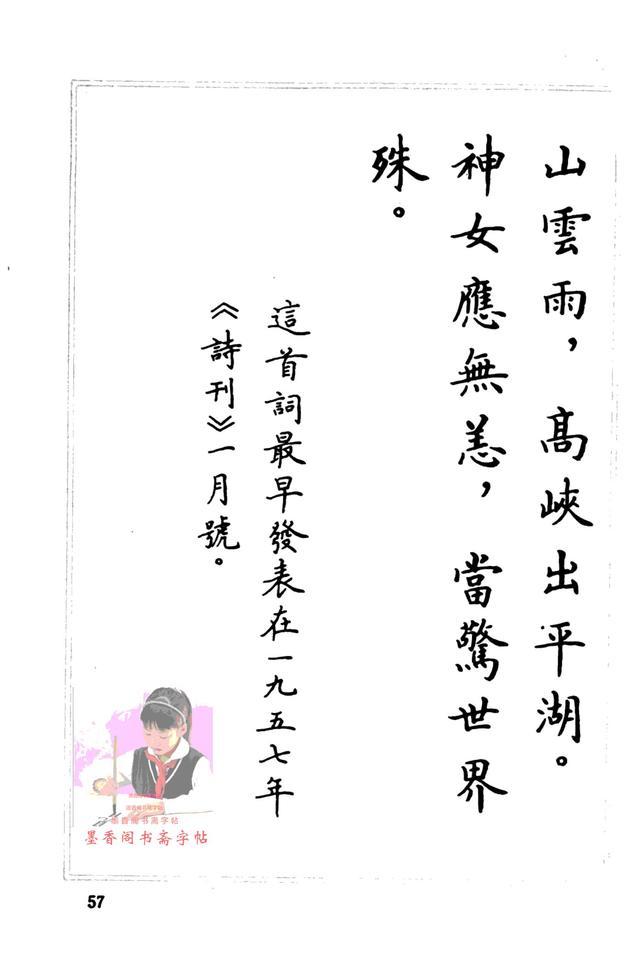 山雲雨，高峽出平湖。
神女應無恙，當驚世界
殊。
這首詞最早發表在一九五七年
《詩刊》一月號。
墨香阁书斋字帖
墨香阁书斋字帖
57